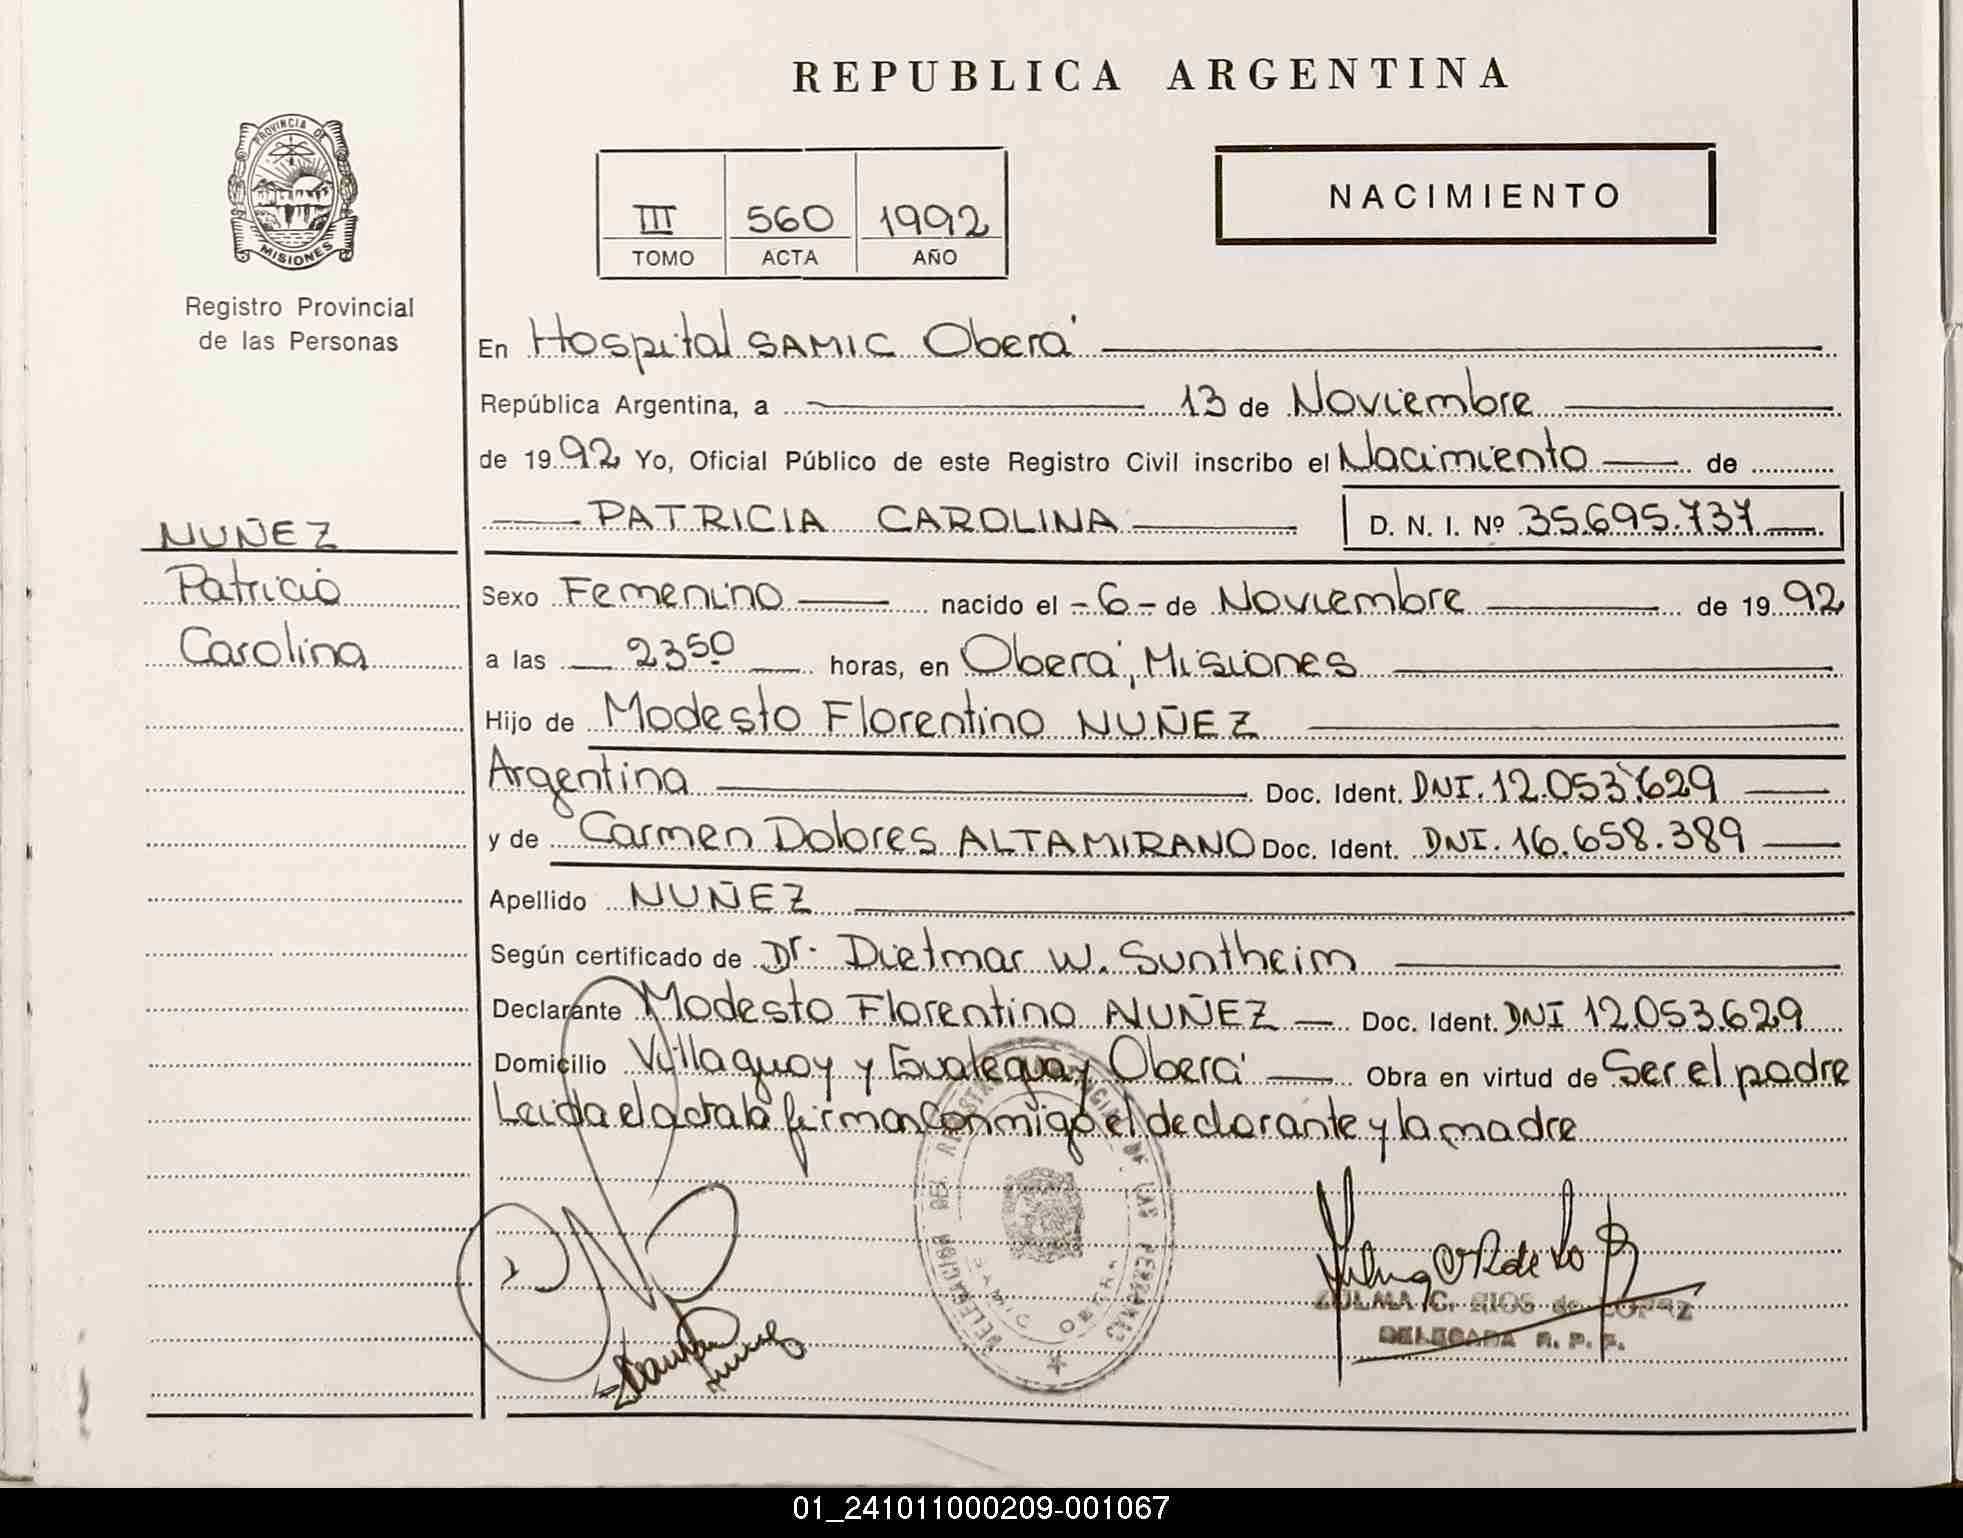 REPUBLICA ARGENTINA
PROVINCIA DE
MISIONES
Registro Provincial
de las Personas
III 560 1992
TOMO ACTA AÑO
NACIMIENTO
En Hospital SAMIC Oberá
República Argentina, a 13 de Noviembre
de 1992 Yo, Oficial Público de este Registro Civil inscribo el Nacimiento de
PATRICIA CAROLINA D. N. I. Nº 35.695.737
NUÑEZ
Patricia
Carolina
Sexo Femenino nacido el -6- de Noviembre de 1992
a las 23 50 horas, en Oberá, Misiones
Hijo de Modesto Florentino NUÑEZ
Argentina Doc. Ident. DNI. 12.053.629
y de Carmen Dolores ALTAMIRANO Doc. Ident. DNI. 16.658.389
Apellido NUÑEZ
Según certificado de Dr. Dietmar W. Suntheim
Declarante Modesto Florentino NUÑEZ Doc. Ident. DNI 12.053.629
Domicilio Villaguay y Gualeguay Oberá Obra en virtud de Ser el padre
Leida el acta la firman conmigo el declarante y la madre
DELEGACION DEL REGISTRO PROVINCIAL DE LAS PERSONAS
OBERA
ZULMA C. RIOS de LOPEZ
DELEGADA R. P. P.
01_241011000209-001067